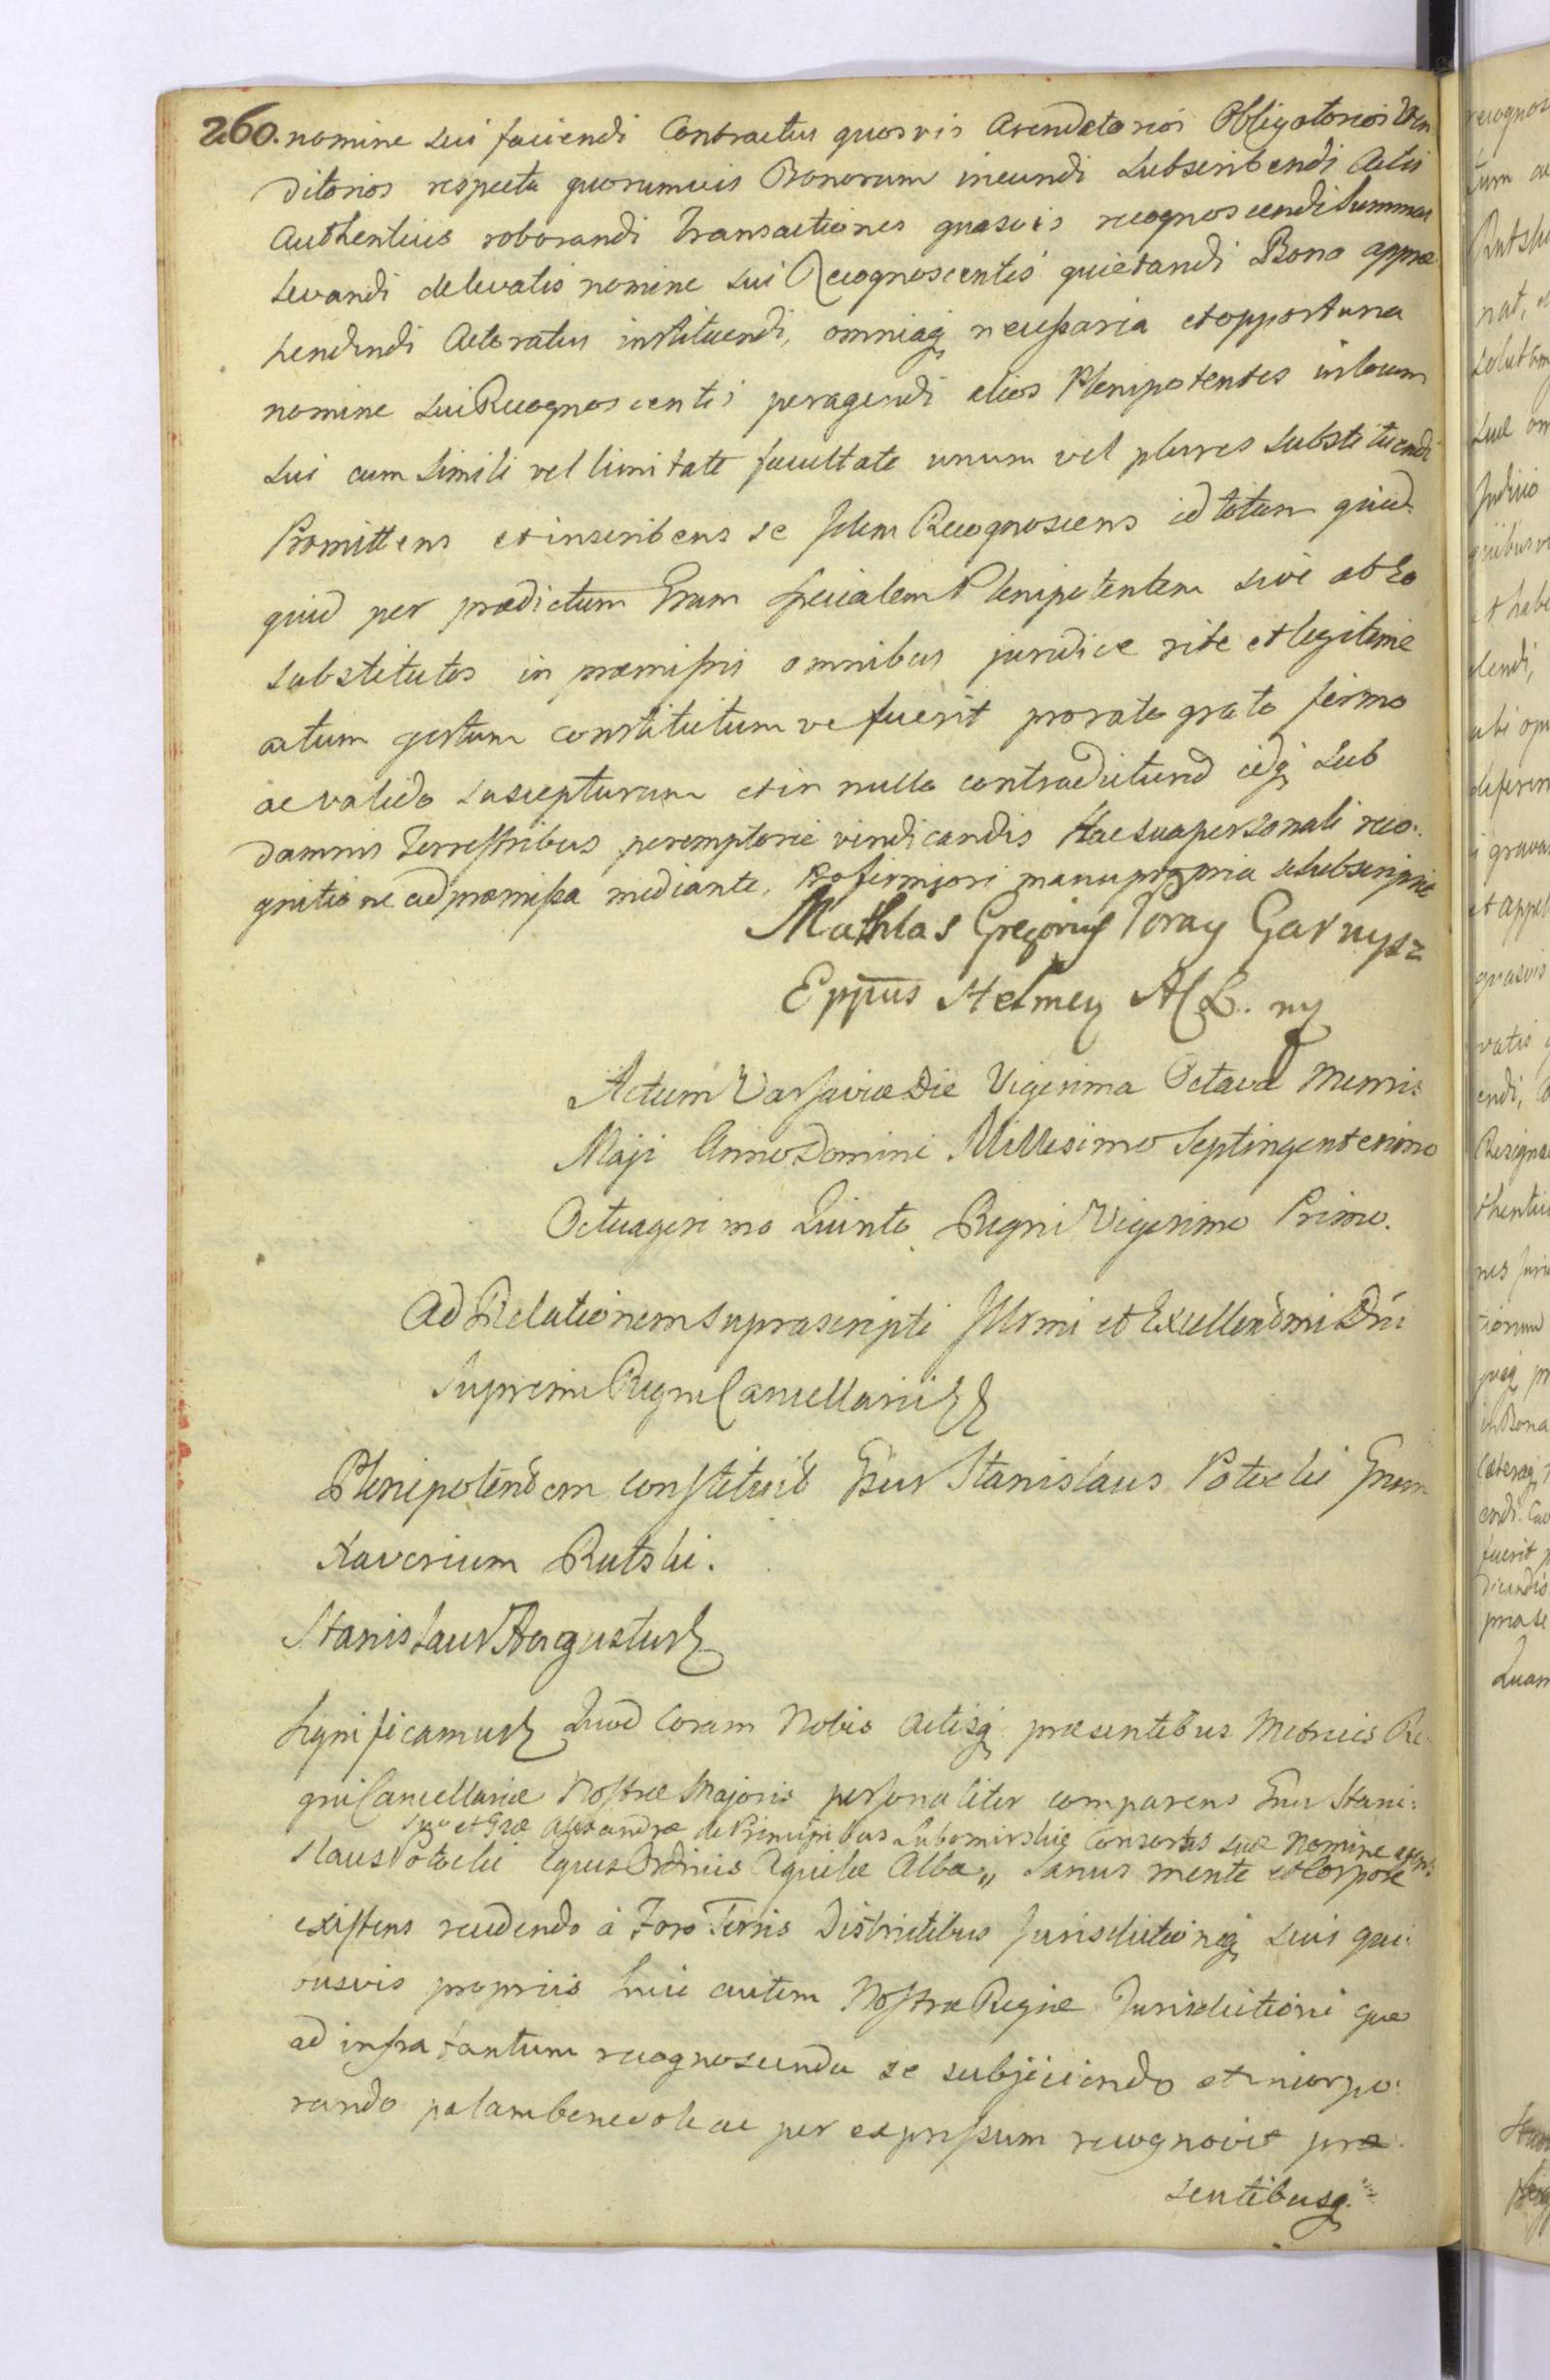 260. nomine sui faciendi Contractus quosvis Arendatorios Obligatorios Ven
ditorios respectu quorumvis Bonorum ineundi subscribendi Actis
Authenticis roborandi Transactiones quasvis recognoscendi Summas
levandi delevatis nomine sui Recognoscentis quietandi Bona appre
hendendi Actoratus instituendi, omniaq necessaria et opportuna
nomine sui Recognoscentis peragendi alios Plenipotentes in locum
sui cum simili vel limitate facultate unum vel plures substituendi
Promittens et inscribens se Idem Recognoscens id totum quid
quid per praedictum Grum specialem Plenipotentem sive ab Eo
substitutos in praemissis omnibus juridice rite et legitime
actum gestum constitutum ve fuerit pro rato grato firmo
ac valido suscepturum et in nullo contradicturum idq sub
damnis Terrestribus peremptorie vindicandis Hac sua personali reco:
gnitione ad praemissa mediante, Pro firmiori manu propria se subscripsit
Mathias Gregorius Poray Garnysz
Eppus Helmen
Actum Varsaviae Die Vigesima Octava Mensis
Maji Anno Domini Millesimo Septingentesimo
Octuagesimo Quinto Regni Vigesimo Primo.
Ad Relationem suprascripti Illrmi et Excellendmi Dni
Supremi Regni Cancellarii
Plenipotendem constituit Gsus Stanislaus Potocki Grum
Xaverium Rutski.
Stanislaus Augustus
Significamus Quod Coram Nobis Actisq praesentibus Metrices Re-
gni Cancellariae Nostrae Majoris personaliter comparens Grus Stani:
suo et Grae Alexandrae de Principibus Lubomirskie Consortis suae Nomine agens
slaus Potocki Eques Ordinis Aquilae Albae „ sanus mente et Corpore
existens recedendo à Foro Terris Districtibus Jurisdictioniq suis qui:
busvis propriis huic autem Nostrae Regiae Jurisdictioni quo
ad infra tantum recognoscenda se subjiciendo et incorpo:
rando palam benevole ac per expressum recognovit prae
sentibusq